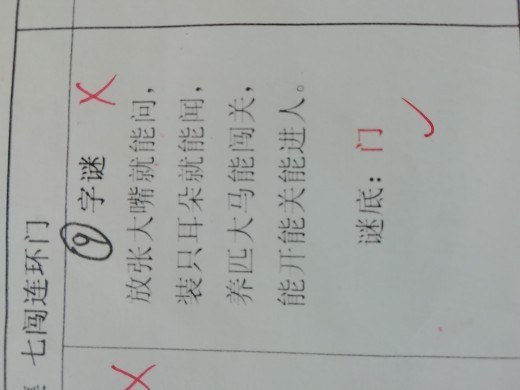 七闯连环门
⑨ 字谜
放张大嘴就能问，
装只耳朵就能闻，
养匹大马能闯关，
能开能关能进人。
谜底：门